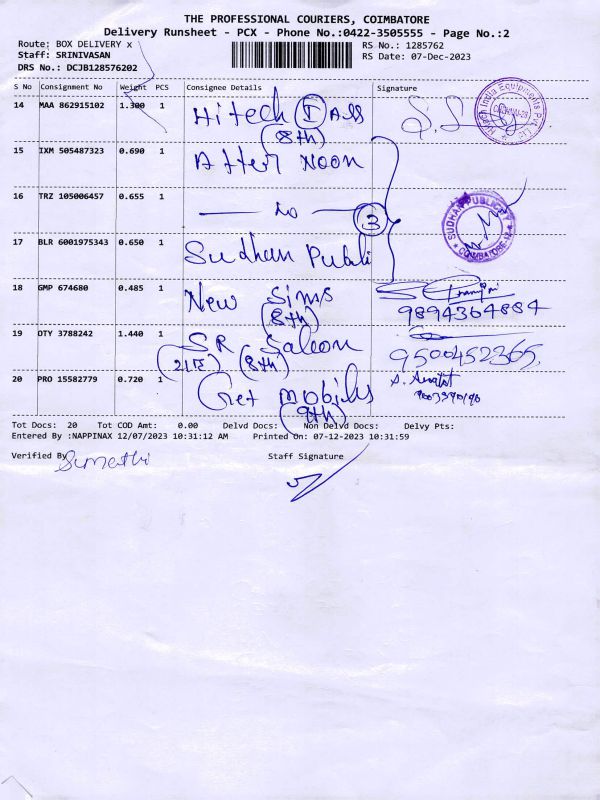 THE PROFESSIONAL COURIERS, COIMBATORE
Delivery Runsheet - PCX - Phone No.:0422-3505555 - Page No.:2
Route: BOX DELIVERY x
RS No.: 1285762
Staff: SRINIVASAN
RS Date: 07-Dec-2023
DRS No.: DCJB128576202
S No Consignment No Weight PCS Consignee Details Signature
14 MAA 862915102 1.300 1 Hitech I Ass
(8th)
15 IXM 505487323 0.690 1 After Noon
16 TRZ 105006457 0.655 1 — do — 3
SUDHAN PUBLICITY
* COIMBATORE-12 *
17 BLR 6001975343 0.650 1 Sudhan Publi
18 GMP 674680 0.485 1 New Sims
(8th)
9894364884
19 OTY 3788242 1.440 1 SR Saloon
(8th)
9500452365
20 PRO 15582779 0.720 1 Get mobiles
(9th)
Tot Docs: 20 Tot COD Amt: 0.00 Delvd Docs: Non Delvd Docs: Delvy Pts:
Entered By :NAPPINAX 12/07/2023 10:31:12 AM Printed On: 07-12-2023 10:31:59
Verified By Sumathi
Staff Signature